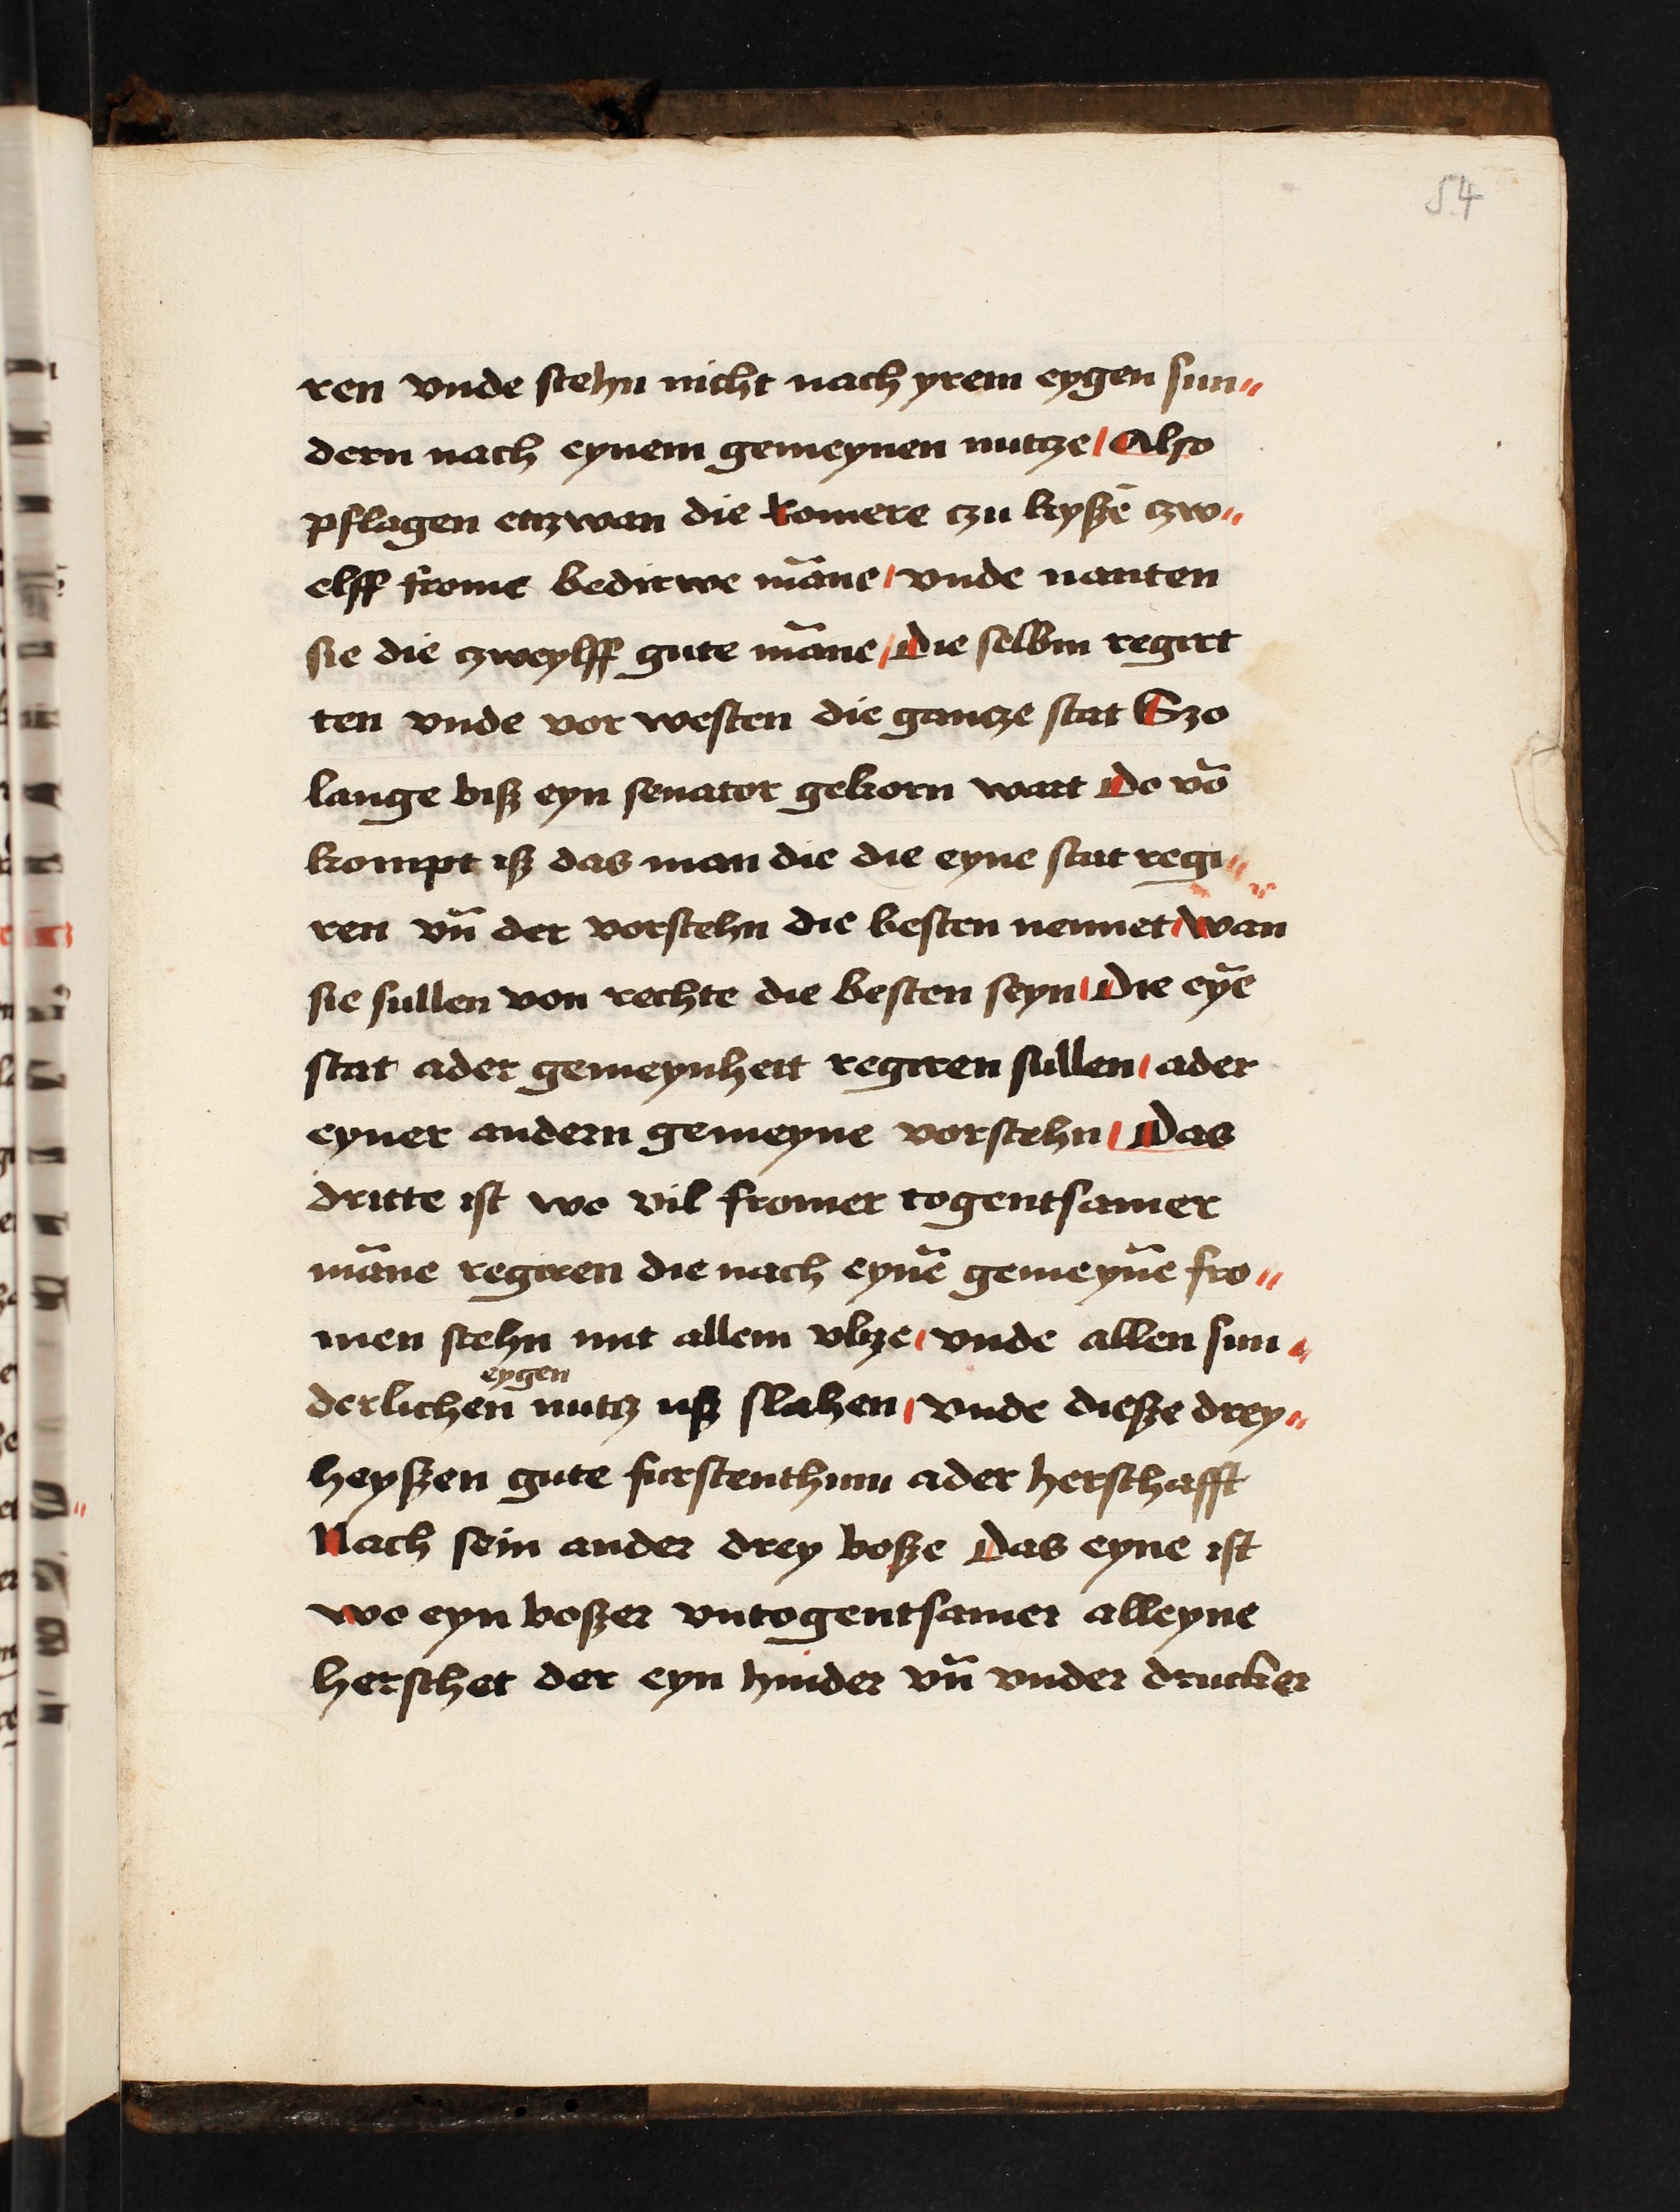 54
ren vnde stehn nicht nach yrem eygen sun„
dern nach eynem gemeynen nutcze / Also
pflagen etczwan die Romere czu kyßē czw„
elff frome bedirwe māne / vnde nanten
sie die czweylff gute māne / Die selbin regirt
ten vnde vor westen die gancze stat Szo
lange biß eyn senator gekorn wart Do vō
kompt iß das man die die eyne stat regi„
ren vn̄ der vorstehn die besten nennet / wan
sie sullen von rechte die besten seyn / Die eyn̄e
stat ader gemeynheit regiren sullen / ader
eyner andern gemeyne vorstehn / Das
dritte ist wo vil fromer togentsamer
māne regiren die nach eynē gemeynē fro„
men stehn mit allem vlize / vnde allen sun„
eygen
derlichen nutcz uß slahen / vnde dieße drey„
heyßen gute furstenthum ader herschafft
Nach sein ander drey boße Das eyne ist
wo eyn boßer vntogentsamer alleyne
herschet der eyn hinder vn̄ vnder drucker